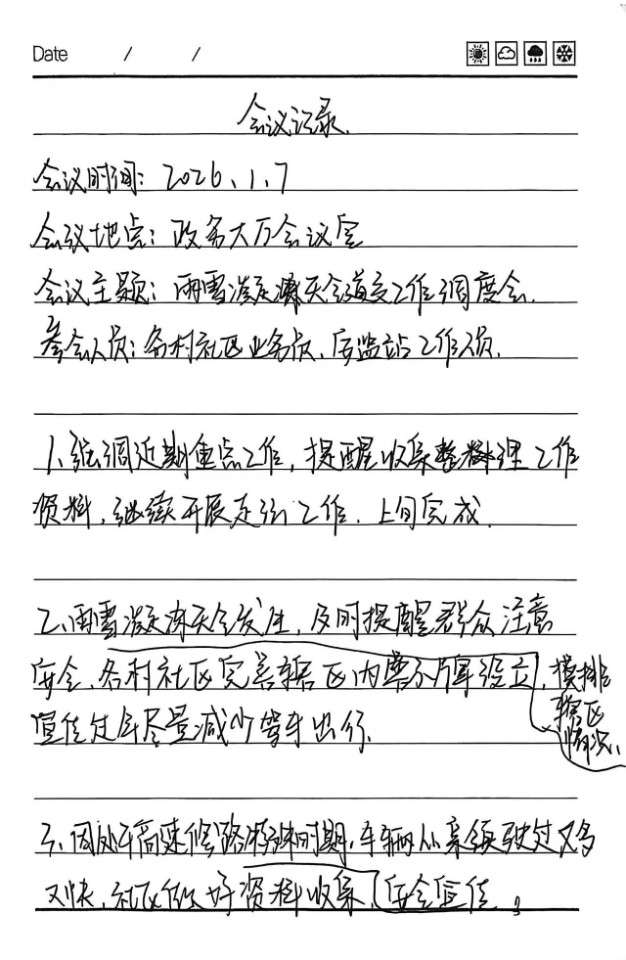 Date / /
会议记录.
会议时间: 2026.1.7
会议地点: 政务大厅会议室
会议主题: 雨雪凝冻天气道交工作调度会.
参会人员: 各村社区业务员, 安监站工作人员.
1. 强调近期重点工作, 提醒收集整理工作
资料, 继续开展走访工作. 上旬完成.
2. 雨雪凝冻天气发生, 及时提醒群众注意
安全, 各村社区完善辖区内警示牌设立, 摸排
辖区
情况.
宣传过年尽量减少驾车出行.
3. 因处于高速修路特殊时期, 车辆从亲领驶过又多
又快, 社区做好资料收集, 安全宣传.